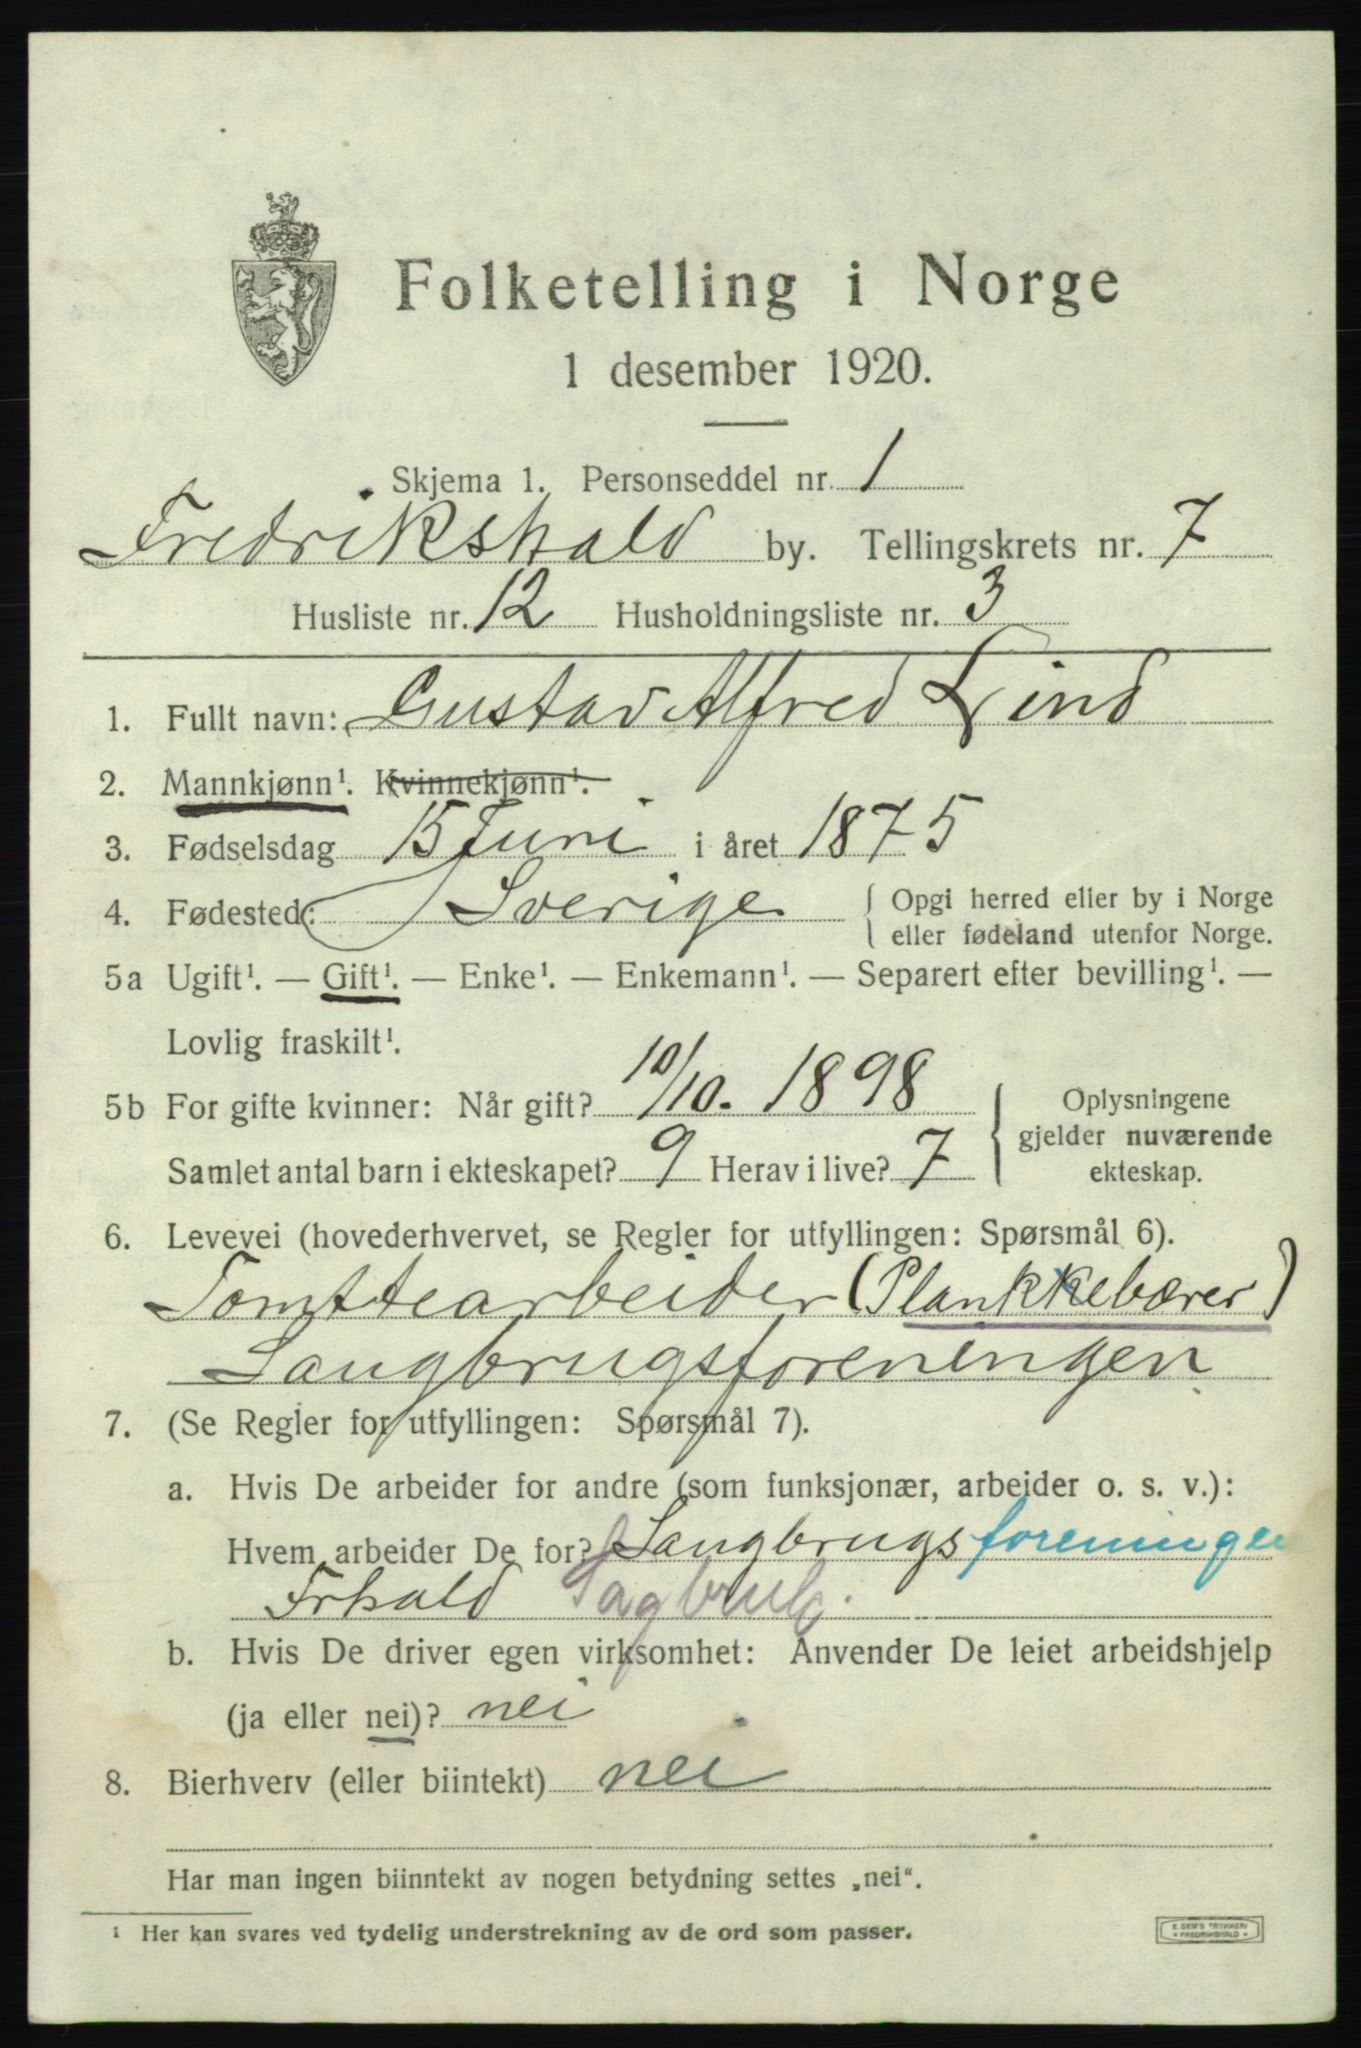 Folketelling i Norge
1 desember 1920.
Skjema 1. Personseddel nr. 1
Fredrikshald by. Tellingskrets nr. 7
Husliste nr. 12 Husholdningsliste nr. 3
1. Fullt navn: Gustav Alfred Lind
2. Mannkjønn¹. Kvinnekjønn¹.
3. Fødselsdag 15 Juni i året 1875
4. Fødested: Sverige { Opgi herred eller by i Norge
eller fødeland utenfor Norge.
5a Ugift¹. — Gift¹. — Enke¹. — Enkemann¹. — Separert efter bevilling¹. —
Lovlig fraskilt¹.
5b For gifte kvinner: Når gift? 10/10. 1898 { Oplysningene
gjelder nuværende
Samlet antal barn i ekteskapet? 9 Herav i live? 7 ekteskap.
6. Levevei (hovederhvervet, se Regler for utfyllingen: Spørsmål 6).
Tomttearbeider (Plankkebærer)
Saugbrugsforeningen
7. (Se Regler for utfyllingen: Spørsmål 7).
a. Hvis De arbeider for andre (som funksjonær, arbeider o. s. v.):
Hvem arbeider De for? Saugbrugsforeningen
Frhald Sagbruk.
b. Hvis De driver egen virksomhet: Anvender De leiet arbeidshjelp
(ja eller nei)? nei
8. Bierhverv (eller biintekt) nei
Har man ingen biinntekt av nogen betydning settes „nei“.
¹ Her kan svares ved tydelig understrekning av de ord som passer.
E. SEM'S TRYKKERI
FREDRIKSHALD